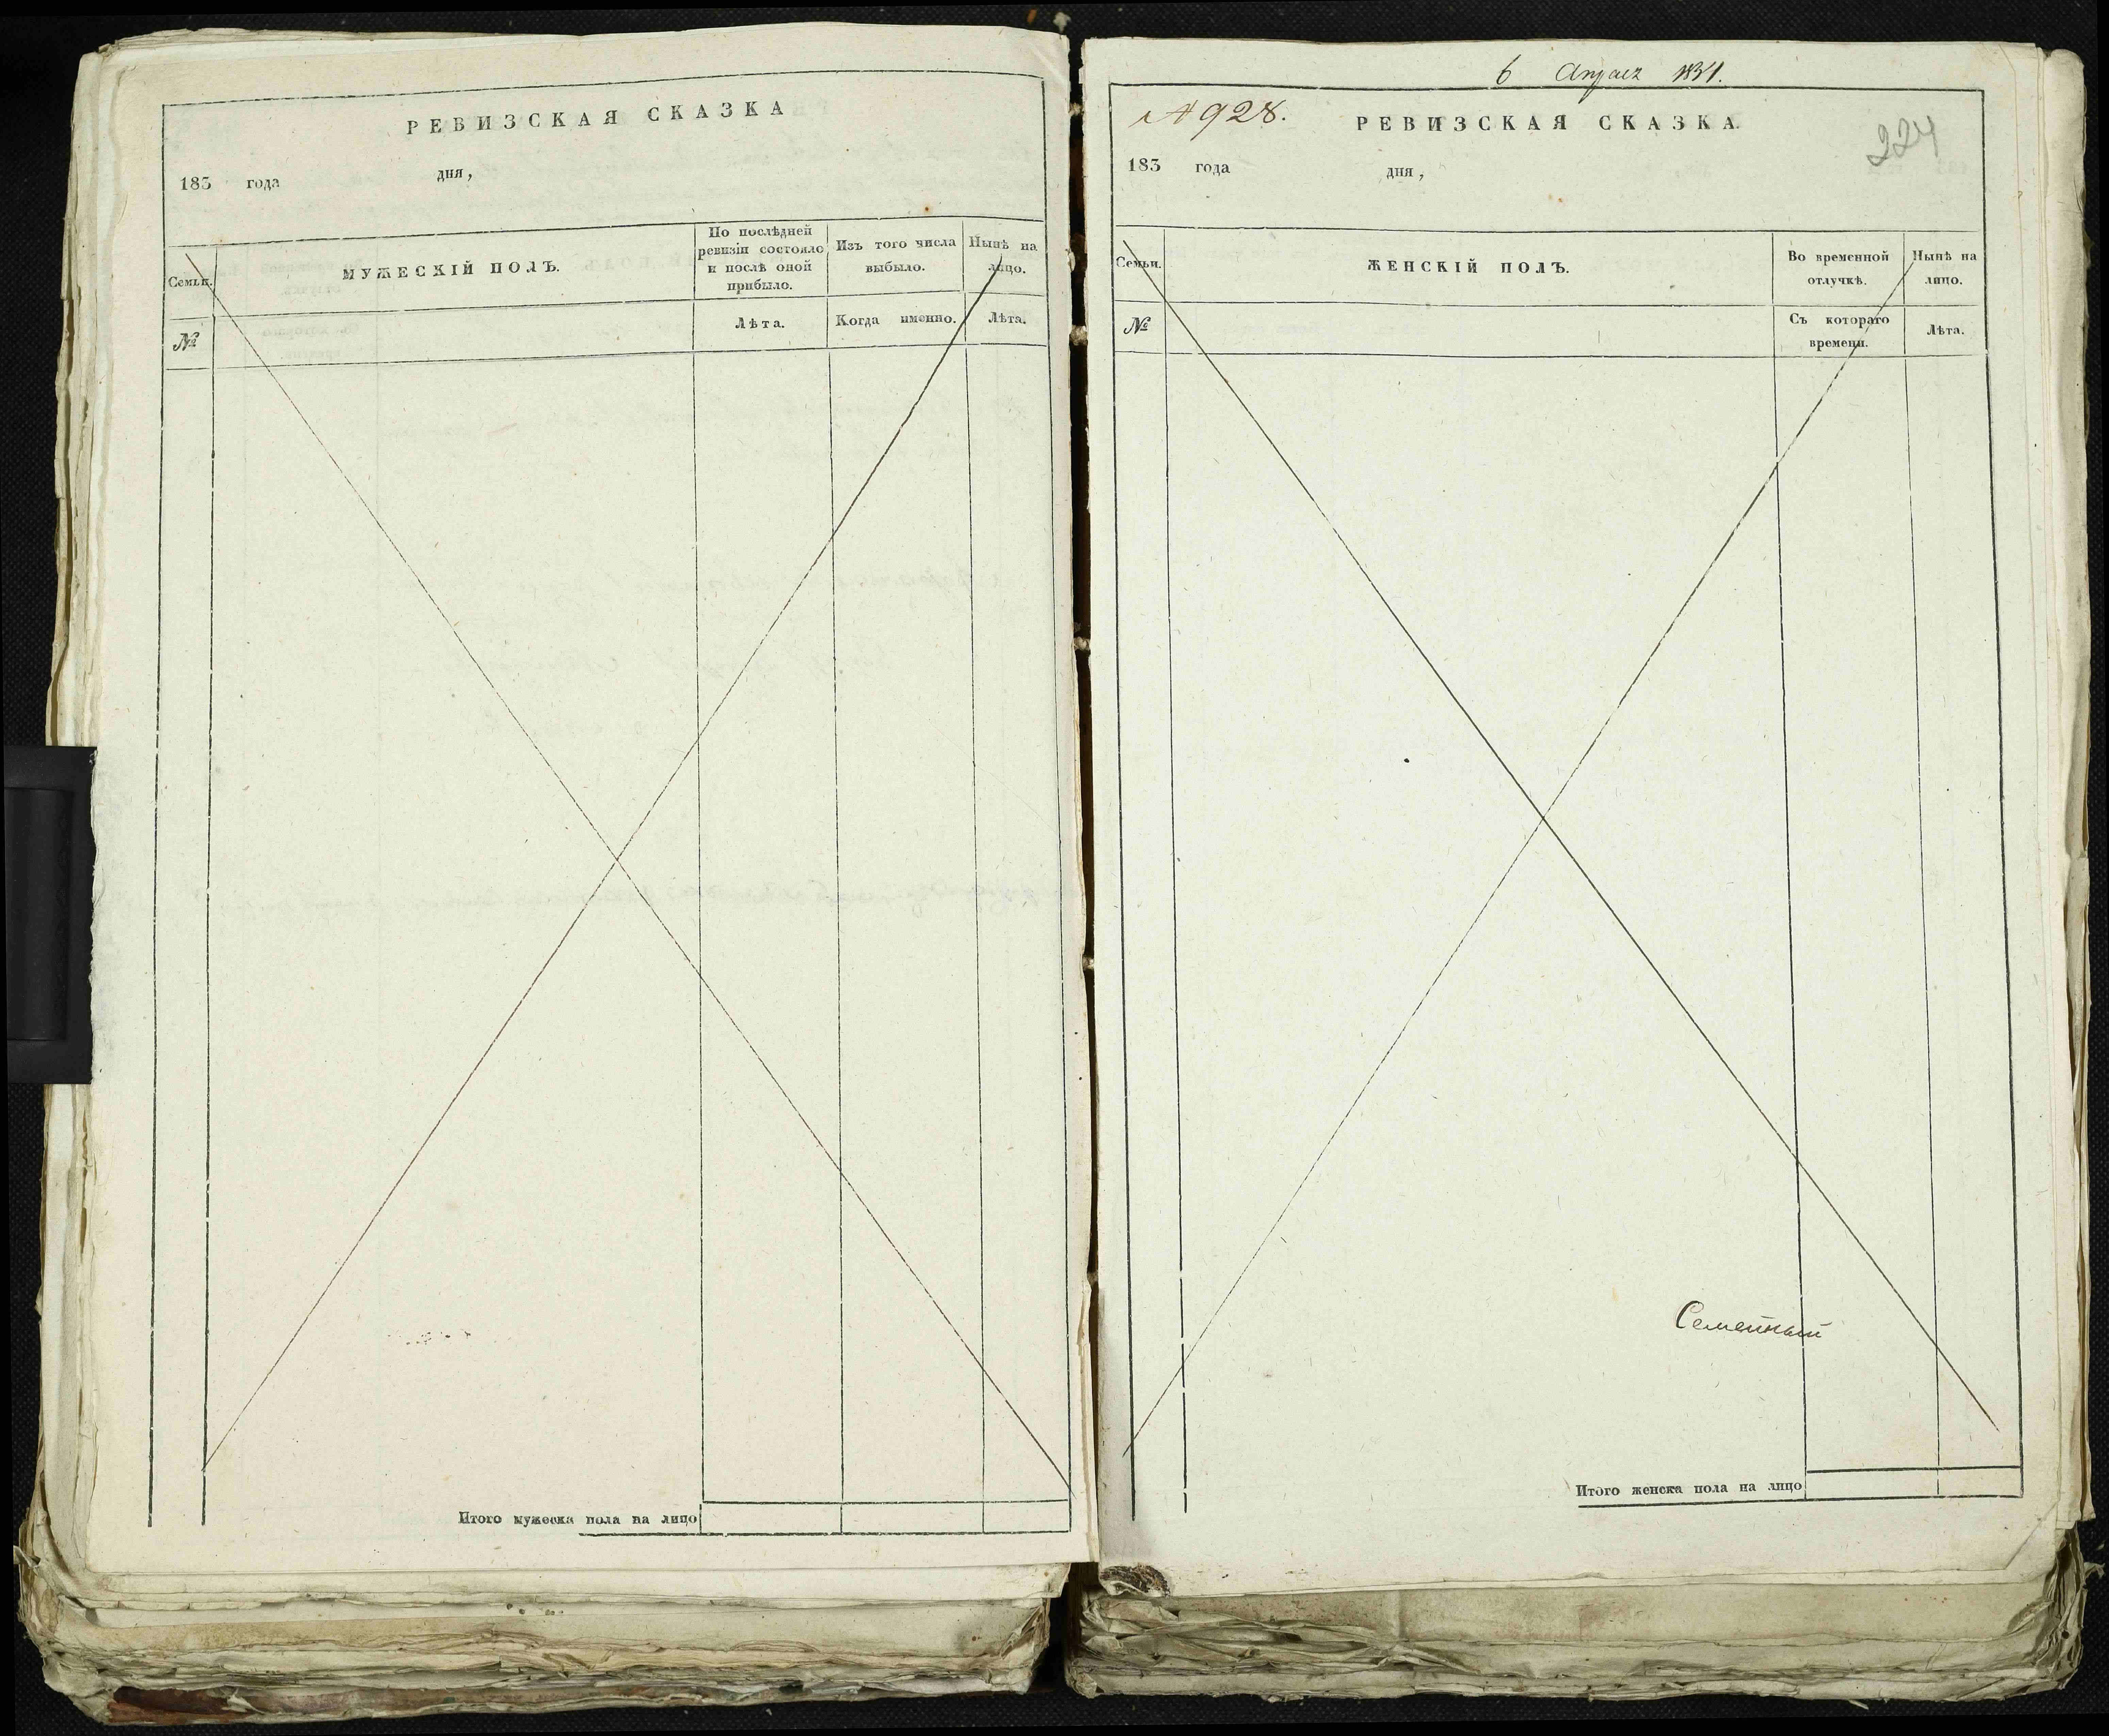 РЕВИЗСКАЯ СКАЗКА
183 года дня,
Семьи.
МУЖЕСКІЙ ПОЛЪ.
По послѣдней
ревизіи состояло
и послѣ оной
прибыло.
Изъ того числа
выбыло.
Нынѣ на
лицо.
№
Лѣта.
Когда именно.
Лѣта.
Итого мужеска пола на лицо
6
№ 928.
РЕВИЗСКАЯ СКАЗКА.
224
183 года дня,
Семьи.
ЖЕНСКІЙ ПОЛЪ.
Во временной
отлучкѣ.
Нынѣ на
лицо.
№
Съ котораго
времени.
Лѣта.
Семейный
Итого женска пола на лицо